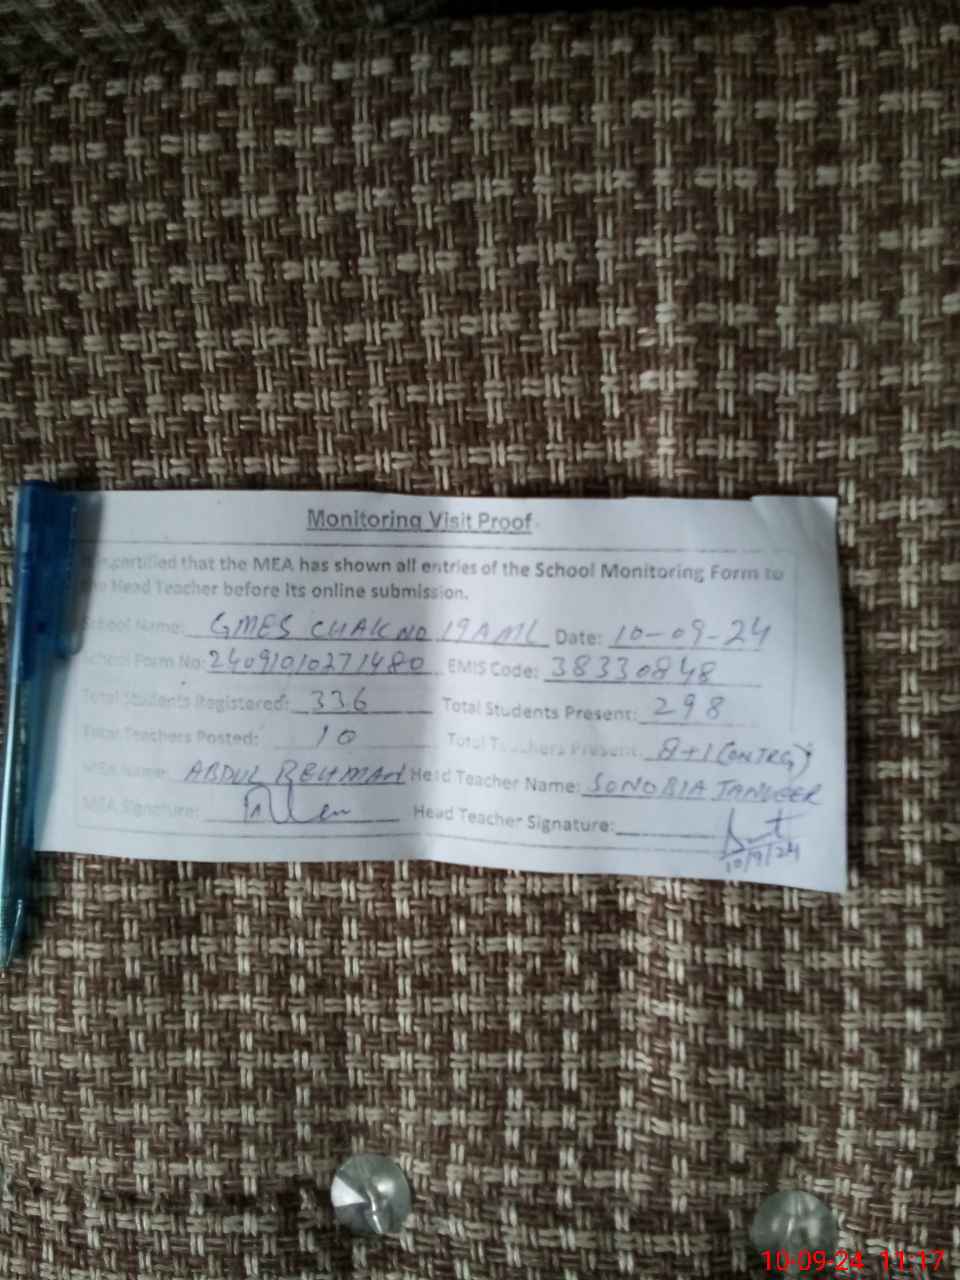 Monitoring Visit Proof
certified that the MEA has shown all entries of the School Monitoring Form to
Head Teacher before its online submission.
School Name: GMES CHAK NO 19AML Date: 10-09-24
School Form No: 24091010271480 EMIS Code: 38330848
Total Students Registered: 336 Total Students Present: 298
Total Teachers Posted: 10 Total Teachers Present: 8+1
MEA Name: ABDUL REHMAN Head Teacher Name: SONOBIA TANVEER
MEA Signature: Head Teacher Signature:
10/9/24
10-09-24 11:17